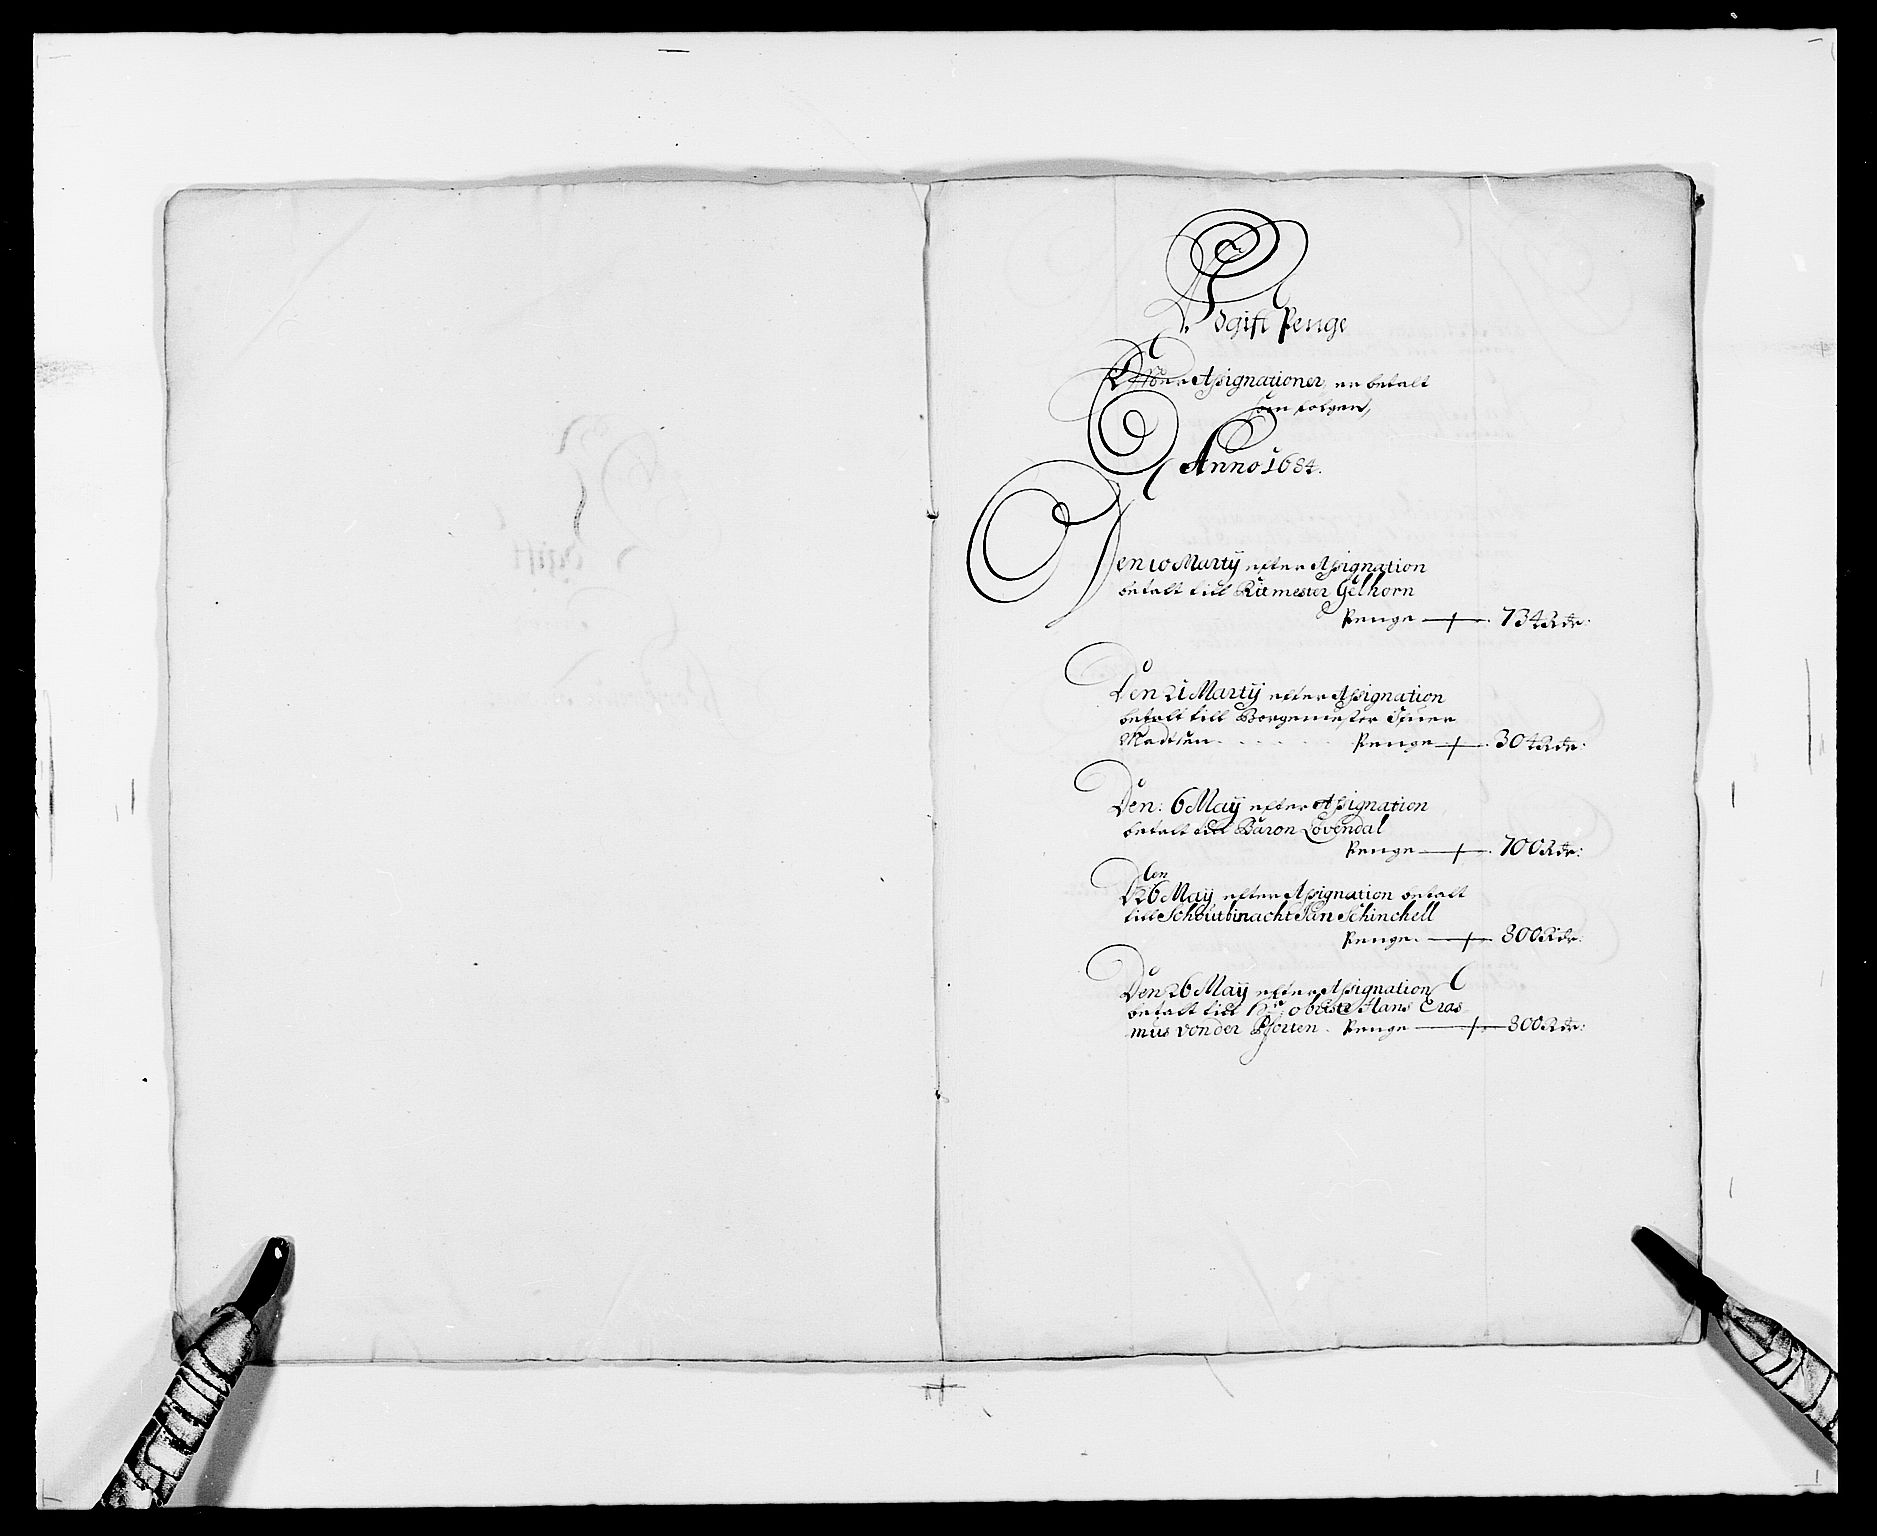 Udgift Penge
Effter Assignationer, er betalt
som følger,
Anno 1684.
Den 10 Martÿ effter Assignation
betalt till Ritmester Gelhorn
Penge — 734 Rdr:
Den 21 Martÿ effter Assignation
betalt till Borgemester Ifuer
Madsen . . . . . Penge — 304 Rdr:
Den: 6 Maÿ effter Assignation
betalt till Baron Løvendal
Penge — 700 Rdr:
Den 26 Maÿ effter Assignation betalt
till Schoutbinacht Jan Schinchell
Penge. — 800 Rdr:
Den 26 Maÿ effter Assignation
betalt till Hr: obriste Hans Eras
mus von der Pforten . Penge — 800 Rdr: